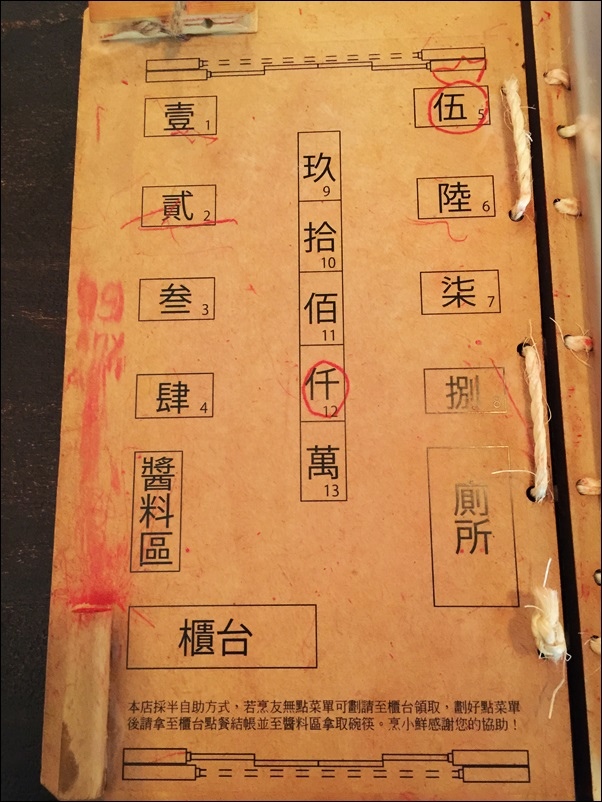 壹 1
貳 2
叁 3
肆 4
醬料區
玖 9
拾 10
佰 11
仟 12
萬 13
伍 5
陸 6
柒 7
捌 8
廁所
櫃台
本店採半自助方式，若烹友無點菜單可劃請至櫃台領取，劃好點菜單
後請拿至櫃台點餐結帳並至醬料區拿取碗筷。烹小鮮感謝您的協助！